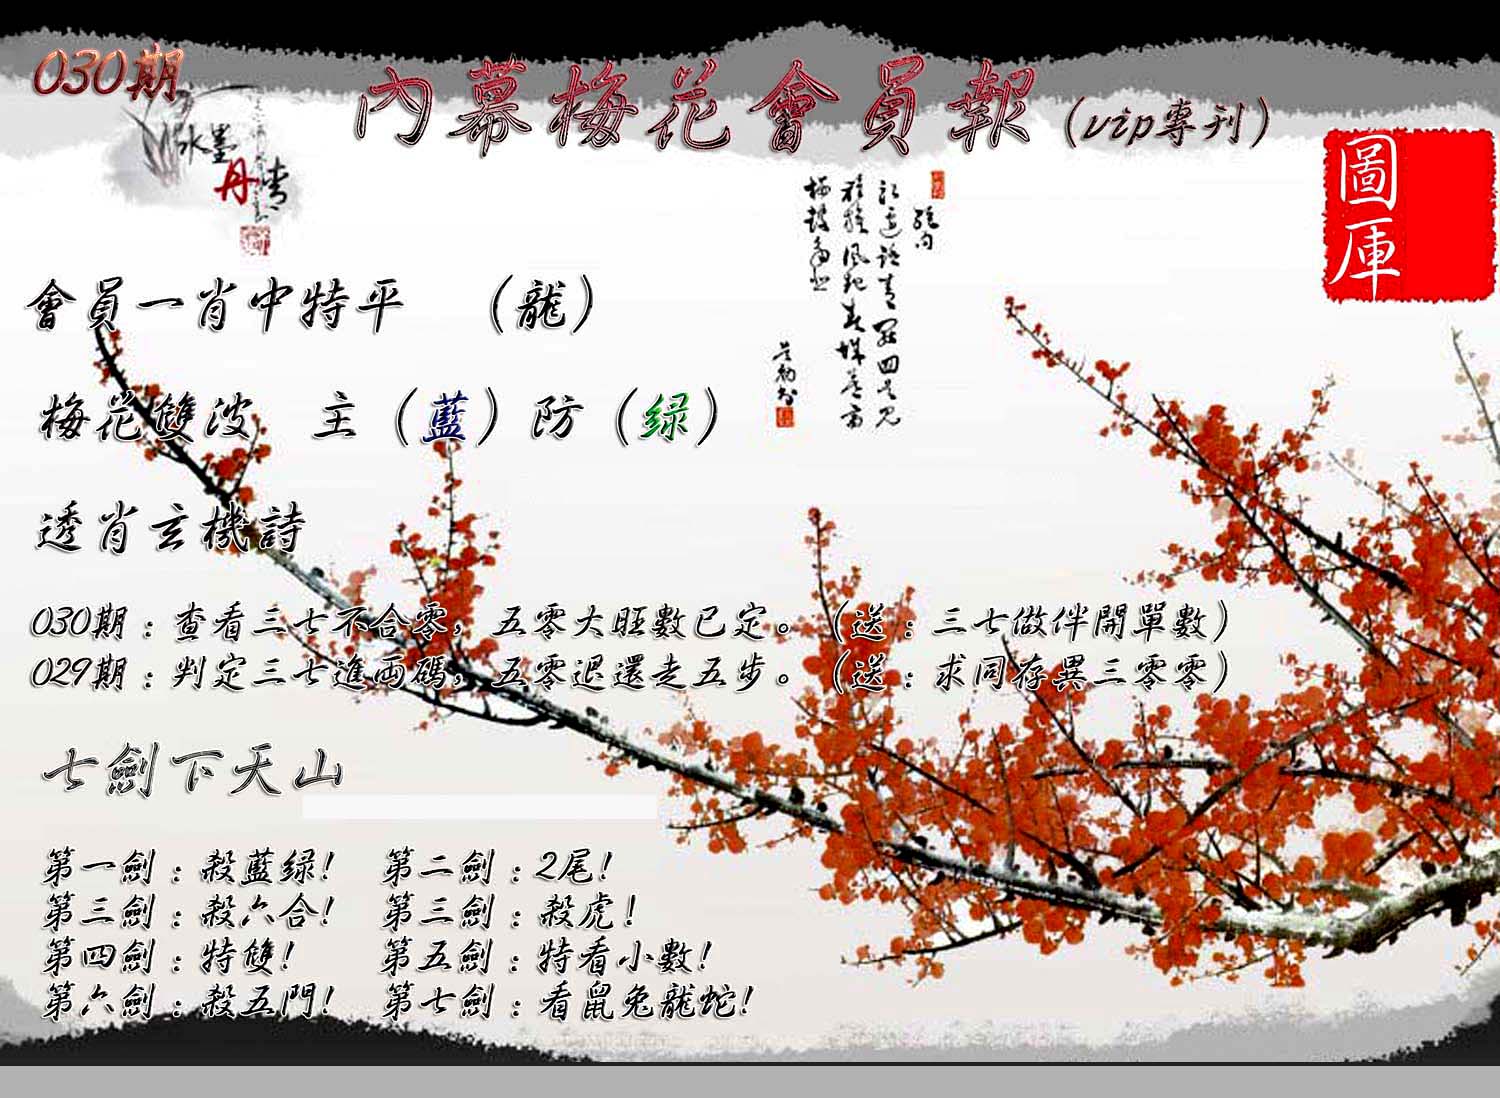 030期
內幕梅花會員報（vip專刊）
水墨
丹青
圖
庫
會員一肖中特平　（龍）
梅花雙波　主（藍）防（绿）
透肖玄機詩
030期：查看三七不合零，五零大旺數已定。（送：三七做伴開單數）
029期：判定三七進両碼，五零退還走五步。（送：求同存異三零零）
七劍下天山
第一劍：殺藍绿！　第二劍：2尾！
第三劍：殺六合！　第三劍：殺虎！
第四劍：特雙！　第五劍：特看小數！
第六劍：殺五門！　第七劍：看鼠兔龍蛇！